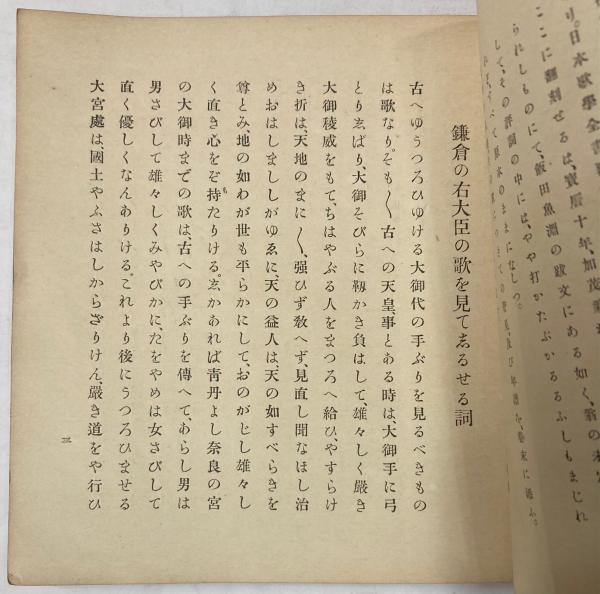 り。日本歌學全書
ここに飜刻せるは、寶暦十年、加茂
られしものにて、飯田魚淵の跋文にある如く、翁の
して、その評詞の中には、やや打かたぶかるるふしもまじれ
原本のままになしつ。
及び年譜を、卷末に添ふ。
鎌倉の右大臣の歌を見てゑるせる詞
古へゆうつろひゆける大御代の手ぶりを見るべきもの
は歌なり。そも〱古への天皇、事とある時は、大御手に弓
とりゑばり、大御そびらに靱かき負はして、雄々しく嚴き
大御稜威をもて、ちはやぶる人をまつろへ給ひ、やすらけ
き折は、天地のまに〱、强ひず敎へず、見直し聞なほし治
めおはしましゝがゆゑに、天の益人は、天の如すべらきを
尊とみ、地の如わが世も平らかにして、おのがじし雄々し
く直き心をぞ持たりける。ゑかあれば靑丹よし奈良の宮
の大御時までの歌は、古への手ぶりを傳へて、あらし男は
男さびして雄々しくみやびかに、たをやめは女さびして
直く優しくなんありける。これより後にうつろひませる
大宮處は、國土やふさはしからざりけん、嚴き道をや行ひ
三